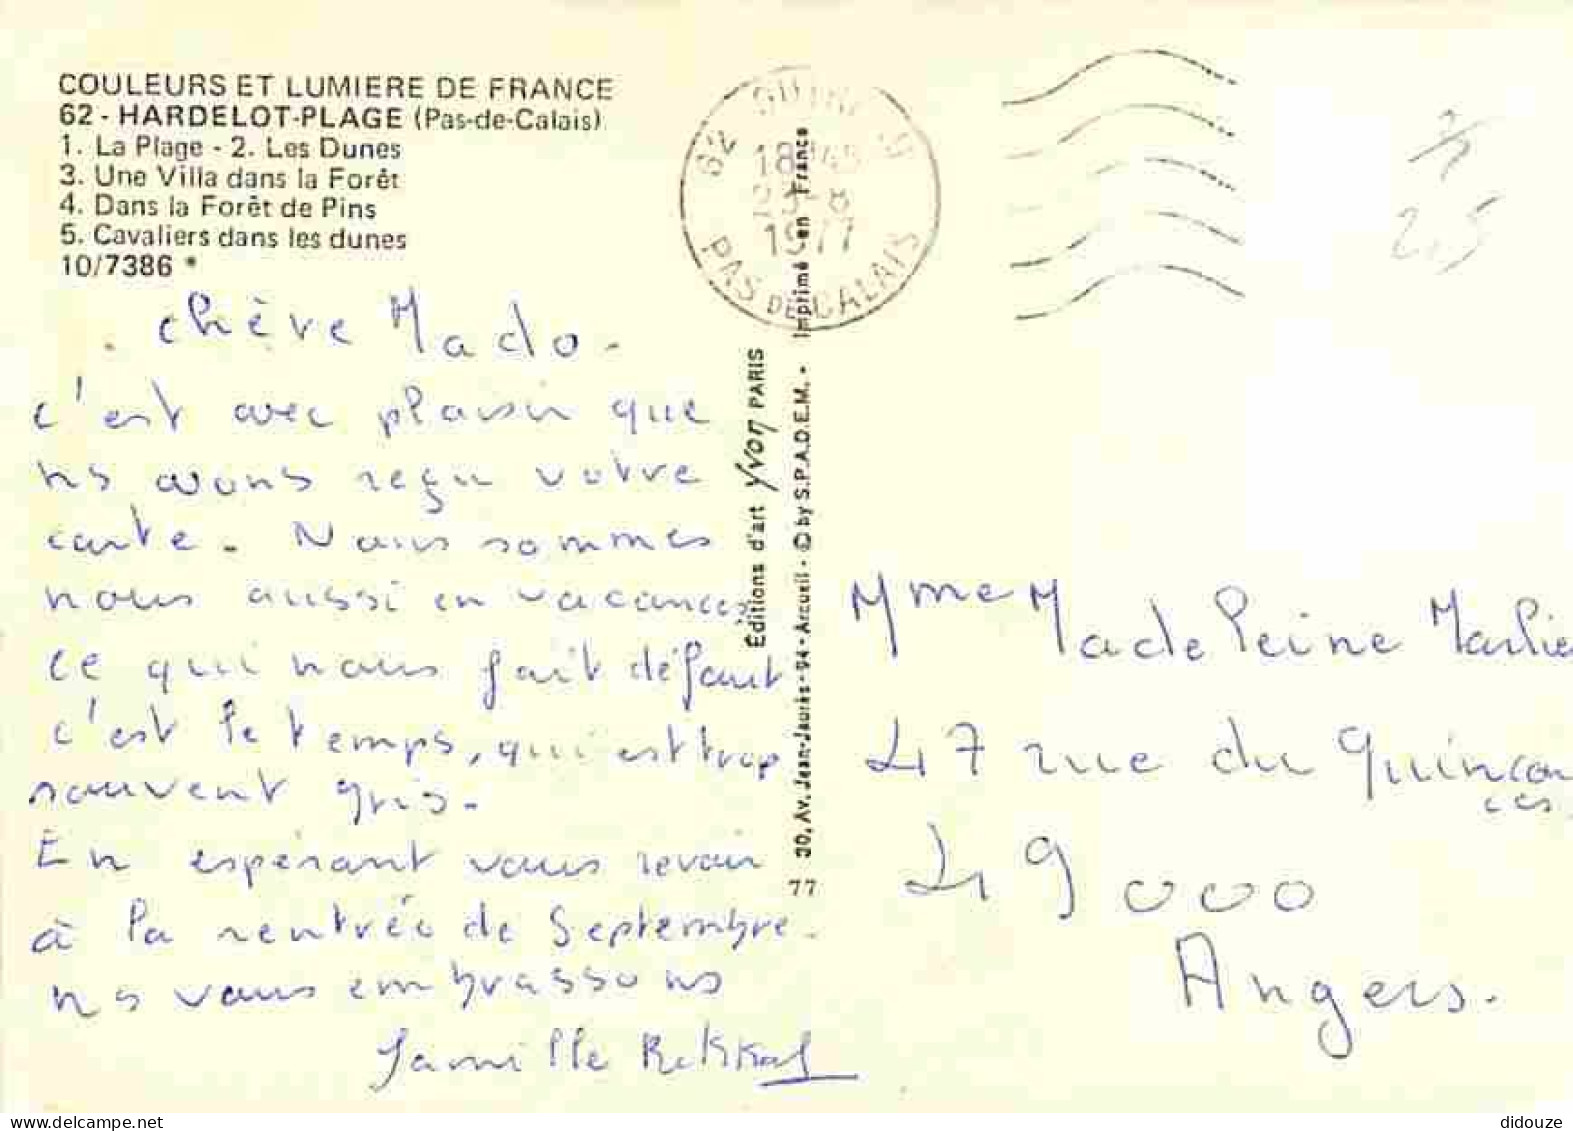 COULEURS ET LUMIERE DE FRANCE
62 - HARDELOT-PLAGE (Pas-de-Calais)
1. La Plage - 2. Les Dunes
3. Une Villa dans la Forêt
4. Dans la Forêt de Pins
5. Cavaliers dans les dunes
10/7386 *
chère Mado.
c'est avec plaisir que
ns avons reçu votre
carte. Nous sommes
nous aussi en vacances
ce qui nous fait défaut
c'est le temps, qui est trop
souvent gris.
En espérant vous revoir
à la rentrée de Septembre.
ns vous embrassons
famille Rekkas
62
18
8
1977
PAS DE CALAIS
Éditions d'art Yvon PARIS
30, Av. Jean-Jaurès - 94 - Arcueil - © by S.P.A.D.E.M. - Imprimé en France
77
2,5
Mme Madeleine Marlie
47 rue du Quincon
ces
49000
Angers.
didouze